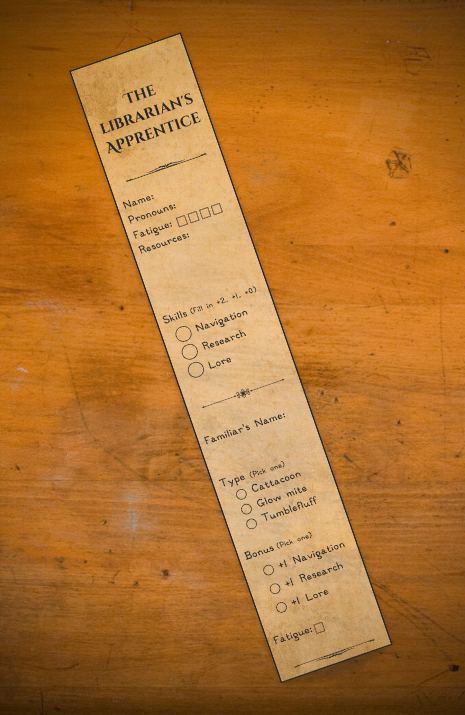 THE
LIBRARIAN'S
APPRENTICE
Name:
Pronouns:
Fatigue:
Resources:
Skills (Fill in +2, +1, +0)
Navigation
Research
Lore
Familiar's Name:
Type (Pick one)
Cattacoon
Glow mite
Tumblefluff
Bonus (Pick one)
+1 Navigation
+1 Research
+1 Lore
Fatigue: